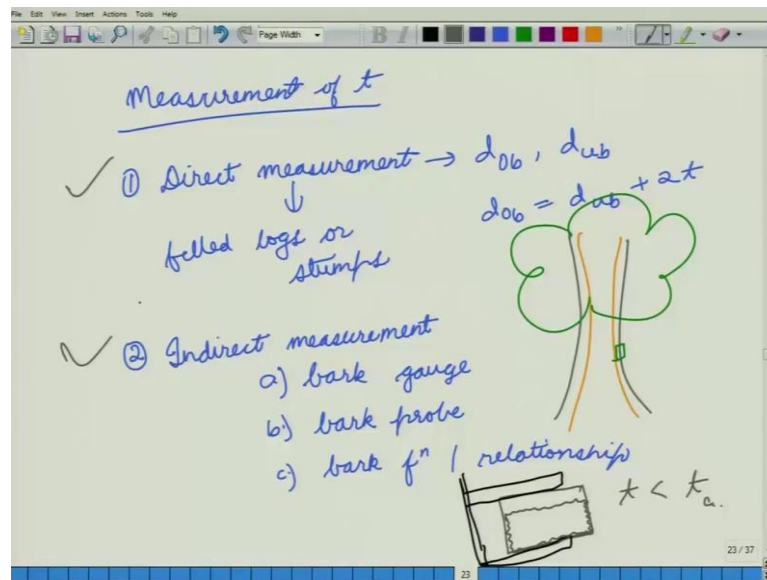 File Edit View Insert Actions Tools Help
Page Width
B I
Measurement of t
① Direct measurement → d_ob, d_ub
d_ob = d_ub + 2t
↓
felled logs or
stumps
② Indirect measurement
a) bark gauge
b) bark probe
c) bark fⁿ / relationship
t < t_a.
23 / 37
23